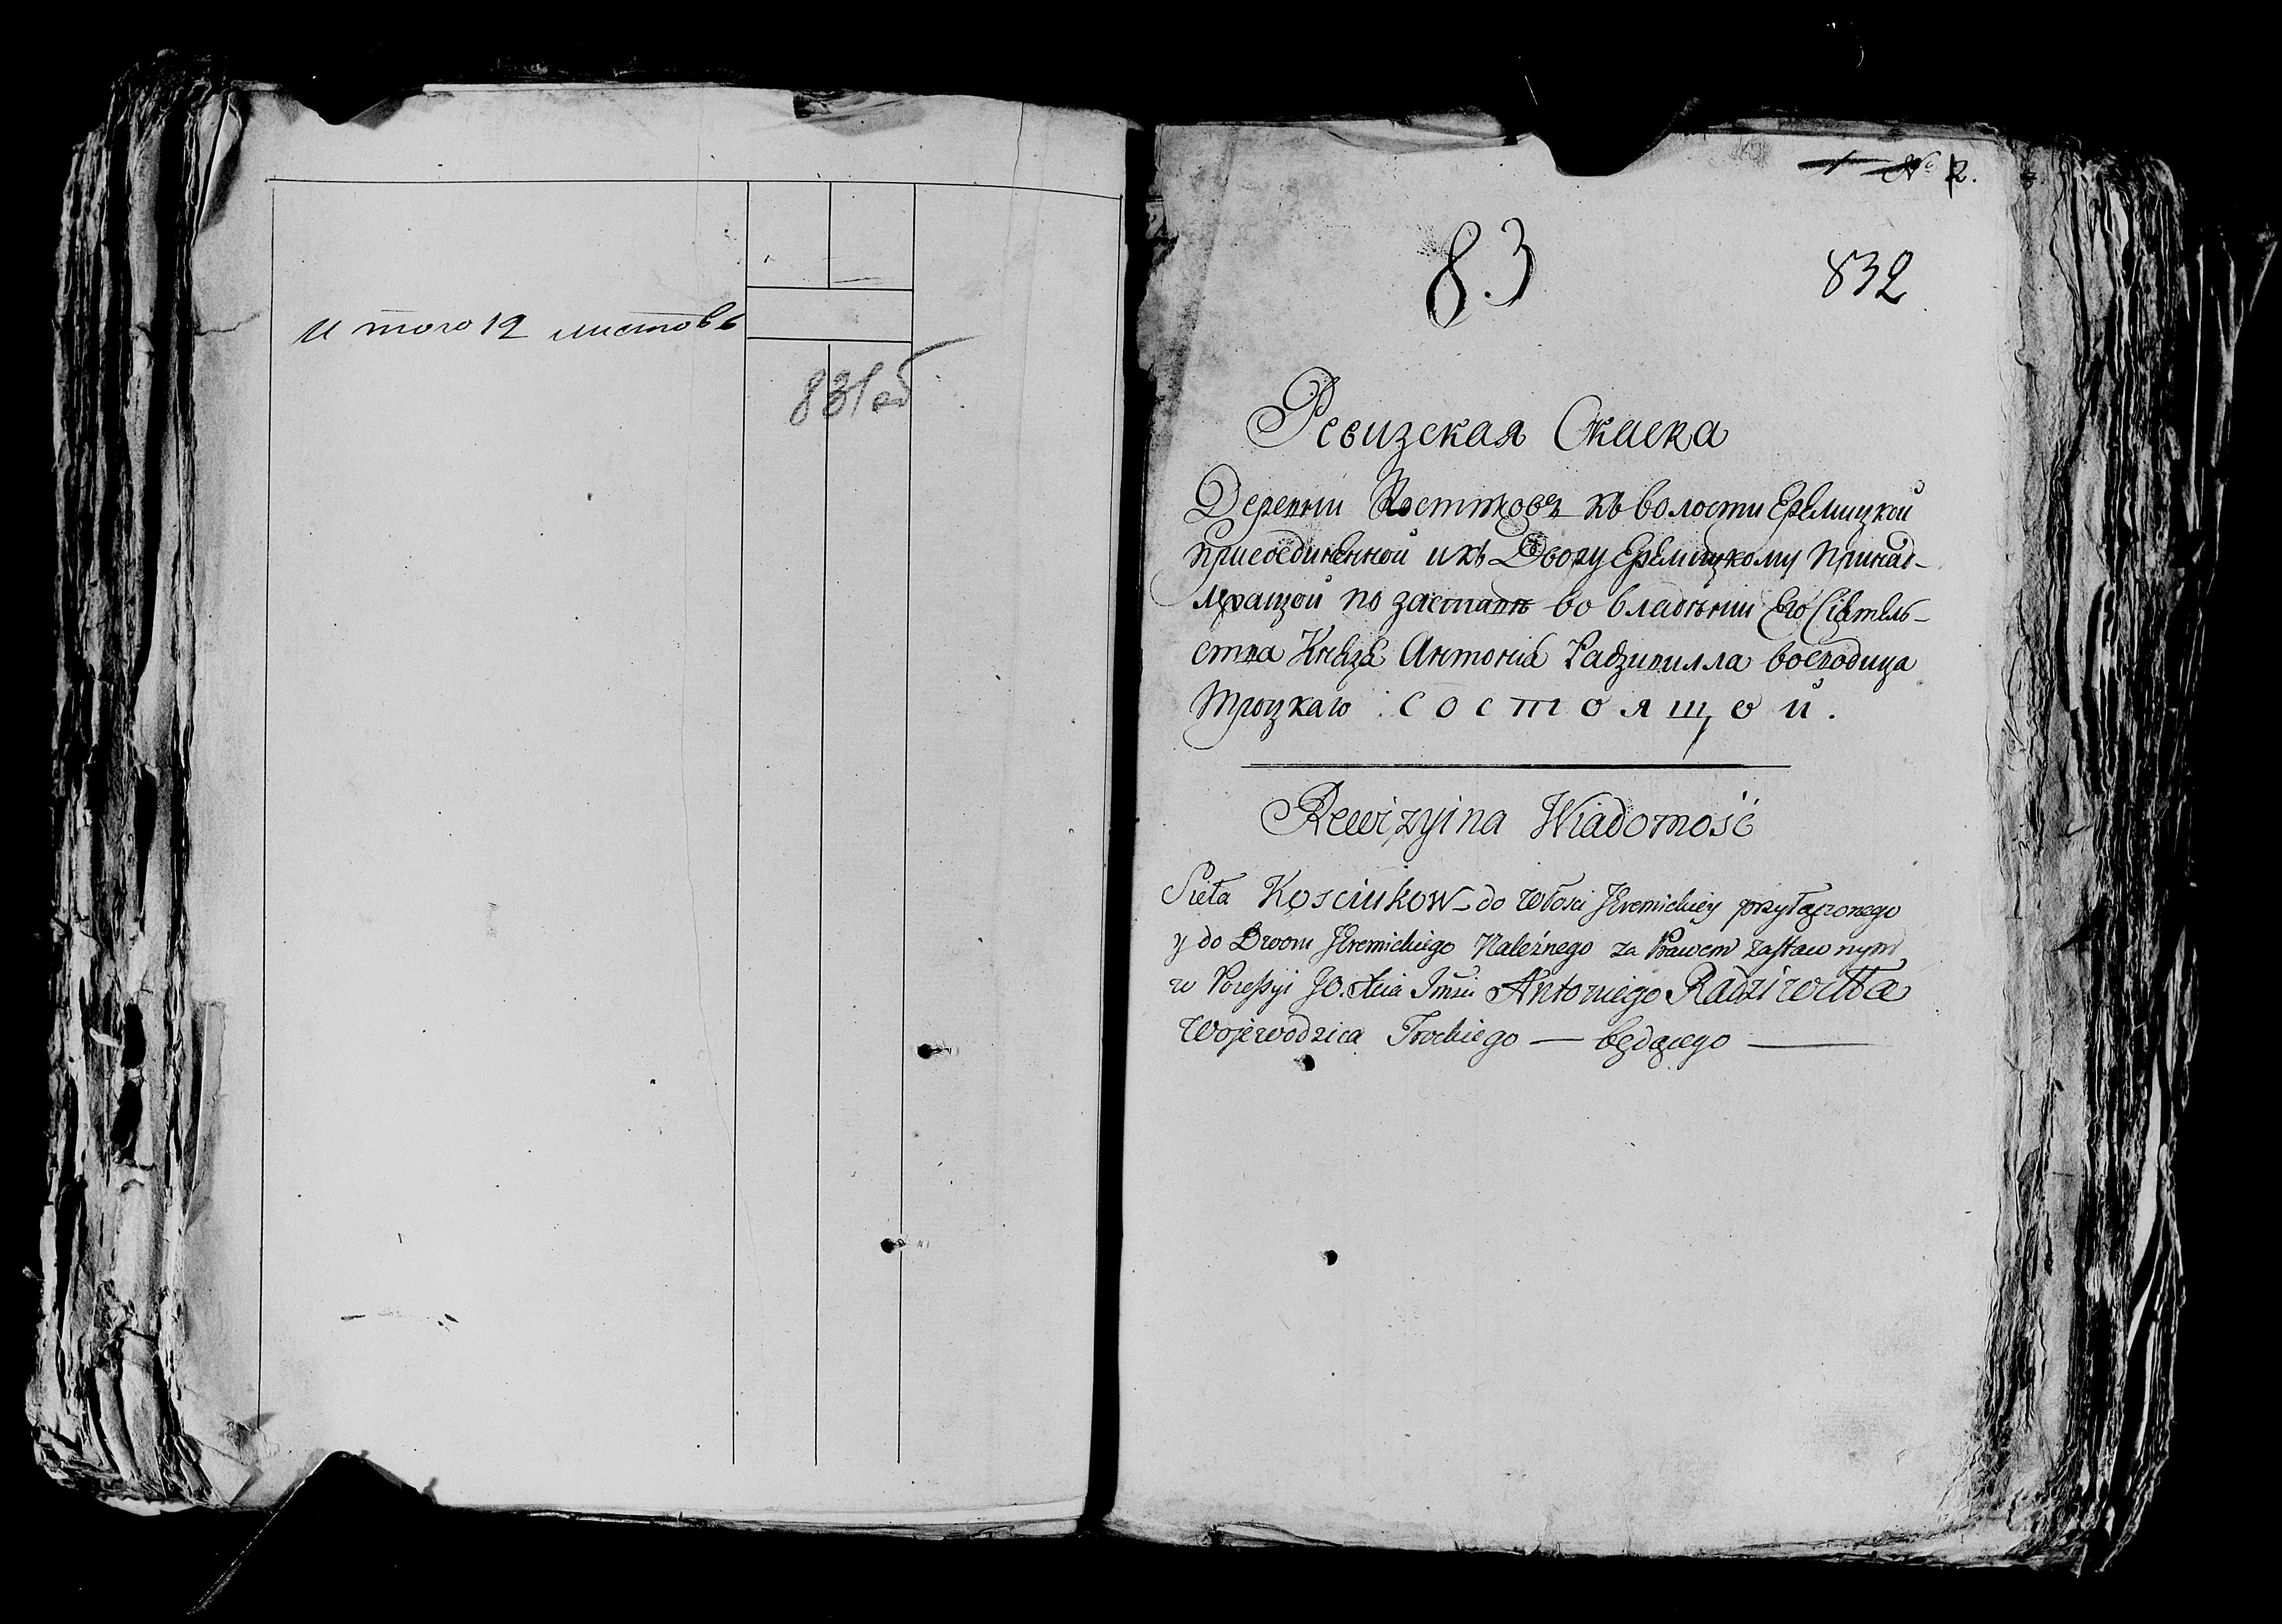 Итого 12 листовъ
831 об
№ 2.
83
832
Ревизская Скаска
Деревни Костюковъ къ волости Еремицкой
присоединенной и къ Двору Еремицкому принад-
лежащой по заставѣ во владѣнии Его Сіятель-
ства Князя Антонія Радзивилла воеводица
Троцкаго состоящей.
Rewizyina Wiadomość
Sieła Kosciukow do Włosci Jeremickiey przyłączonego
y do Dworu Jeremickiego Należnego za Prawem zastawnym
w Possessyi JO. Xcia Jmsci Antoniego Radziwiłła
Wojewodzica Trockiego — będącego —